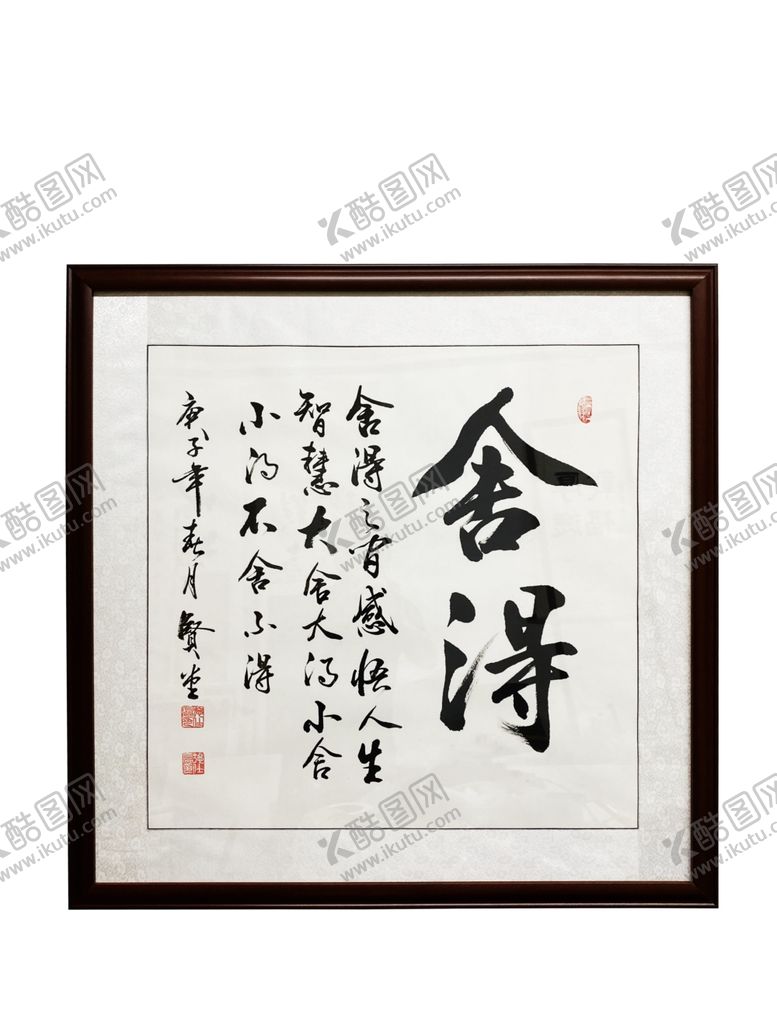 舍得
舍得之间感悟人生
智慧大舍大得小舍
小得不舍不得
庚子年春月贤堂
酷图网
www.ikutu.com
酷图网
www.ikutu.com
酷图网
www.ikutu.com
酷图网
www.ikutu.com
酷图网
www.ikutu.com
酷图网
www.ikutu.com
酷图网
www.ikutu.com
酷图网
www.ikutu.com
酷图网
www.ikutu.com